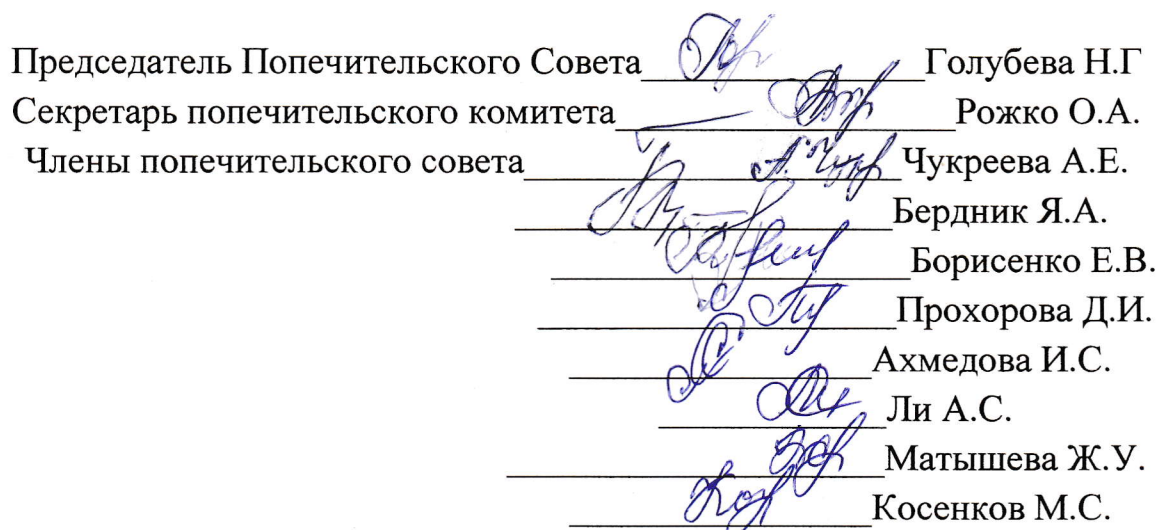 Председатель Попечительского Совета Голубева Н.Г
Секретарь попечительского комитета Рожко О.А.
Члены попечительского совета Чукреева А.Е.
Бердник Я.А.
Борисенко Е.В.
Прохорова Д.И.
Ахмедова И.С.
Ли А.С.
Матышева Ж.У.
Косенков М.С.